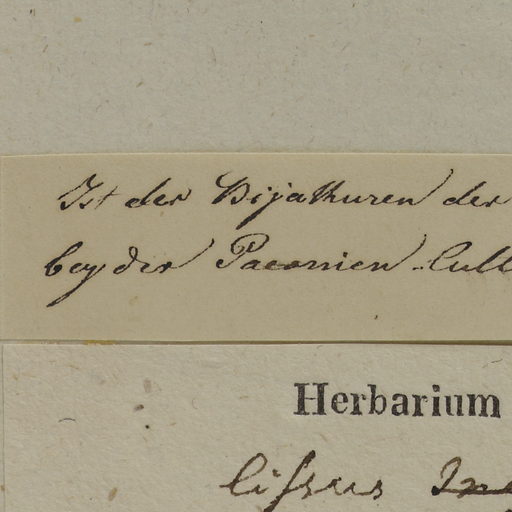 Ist der Bijathuren der
bey der Paeonien-Cult
Herbarium
Cissus